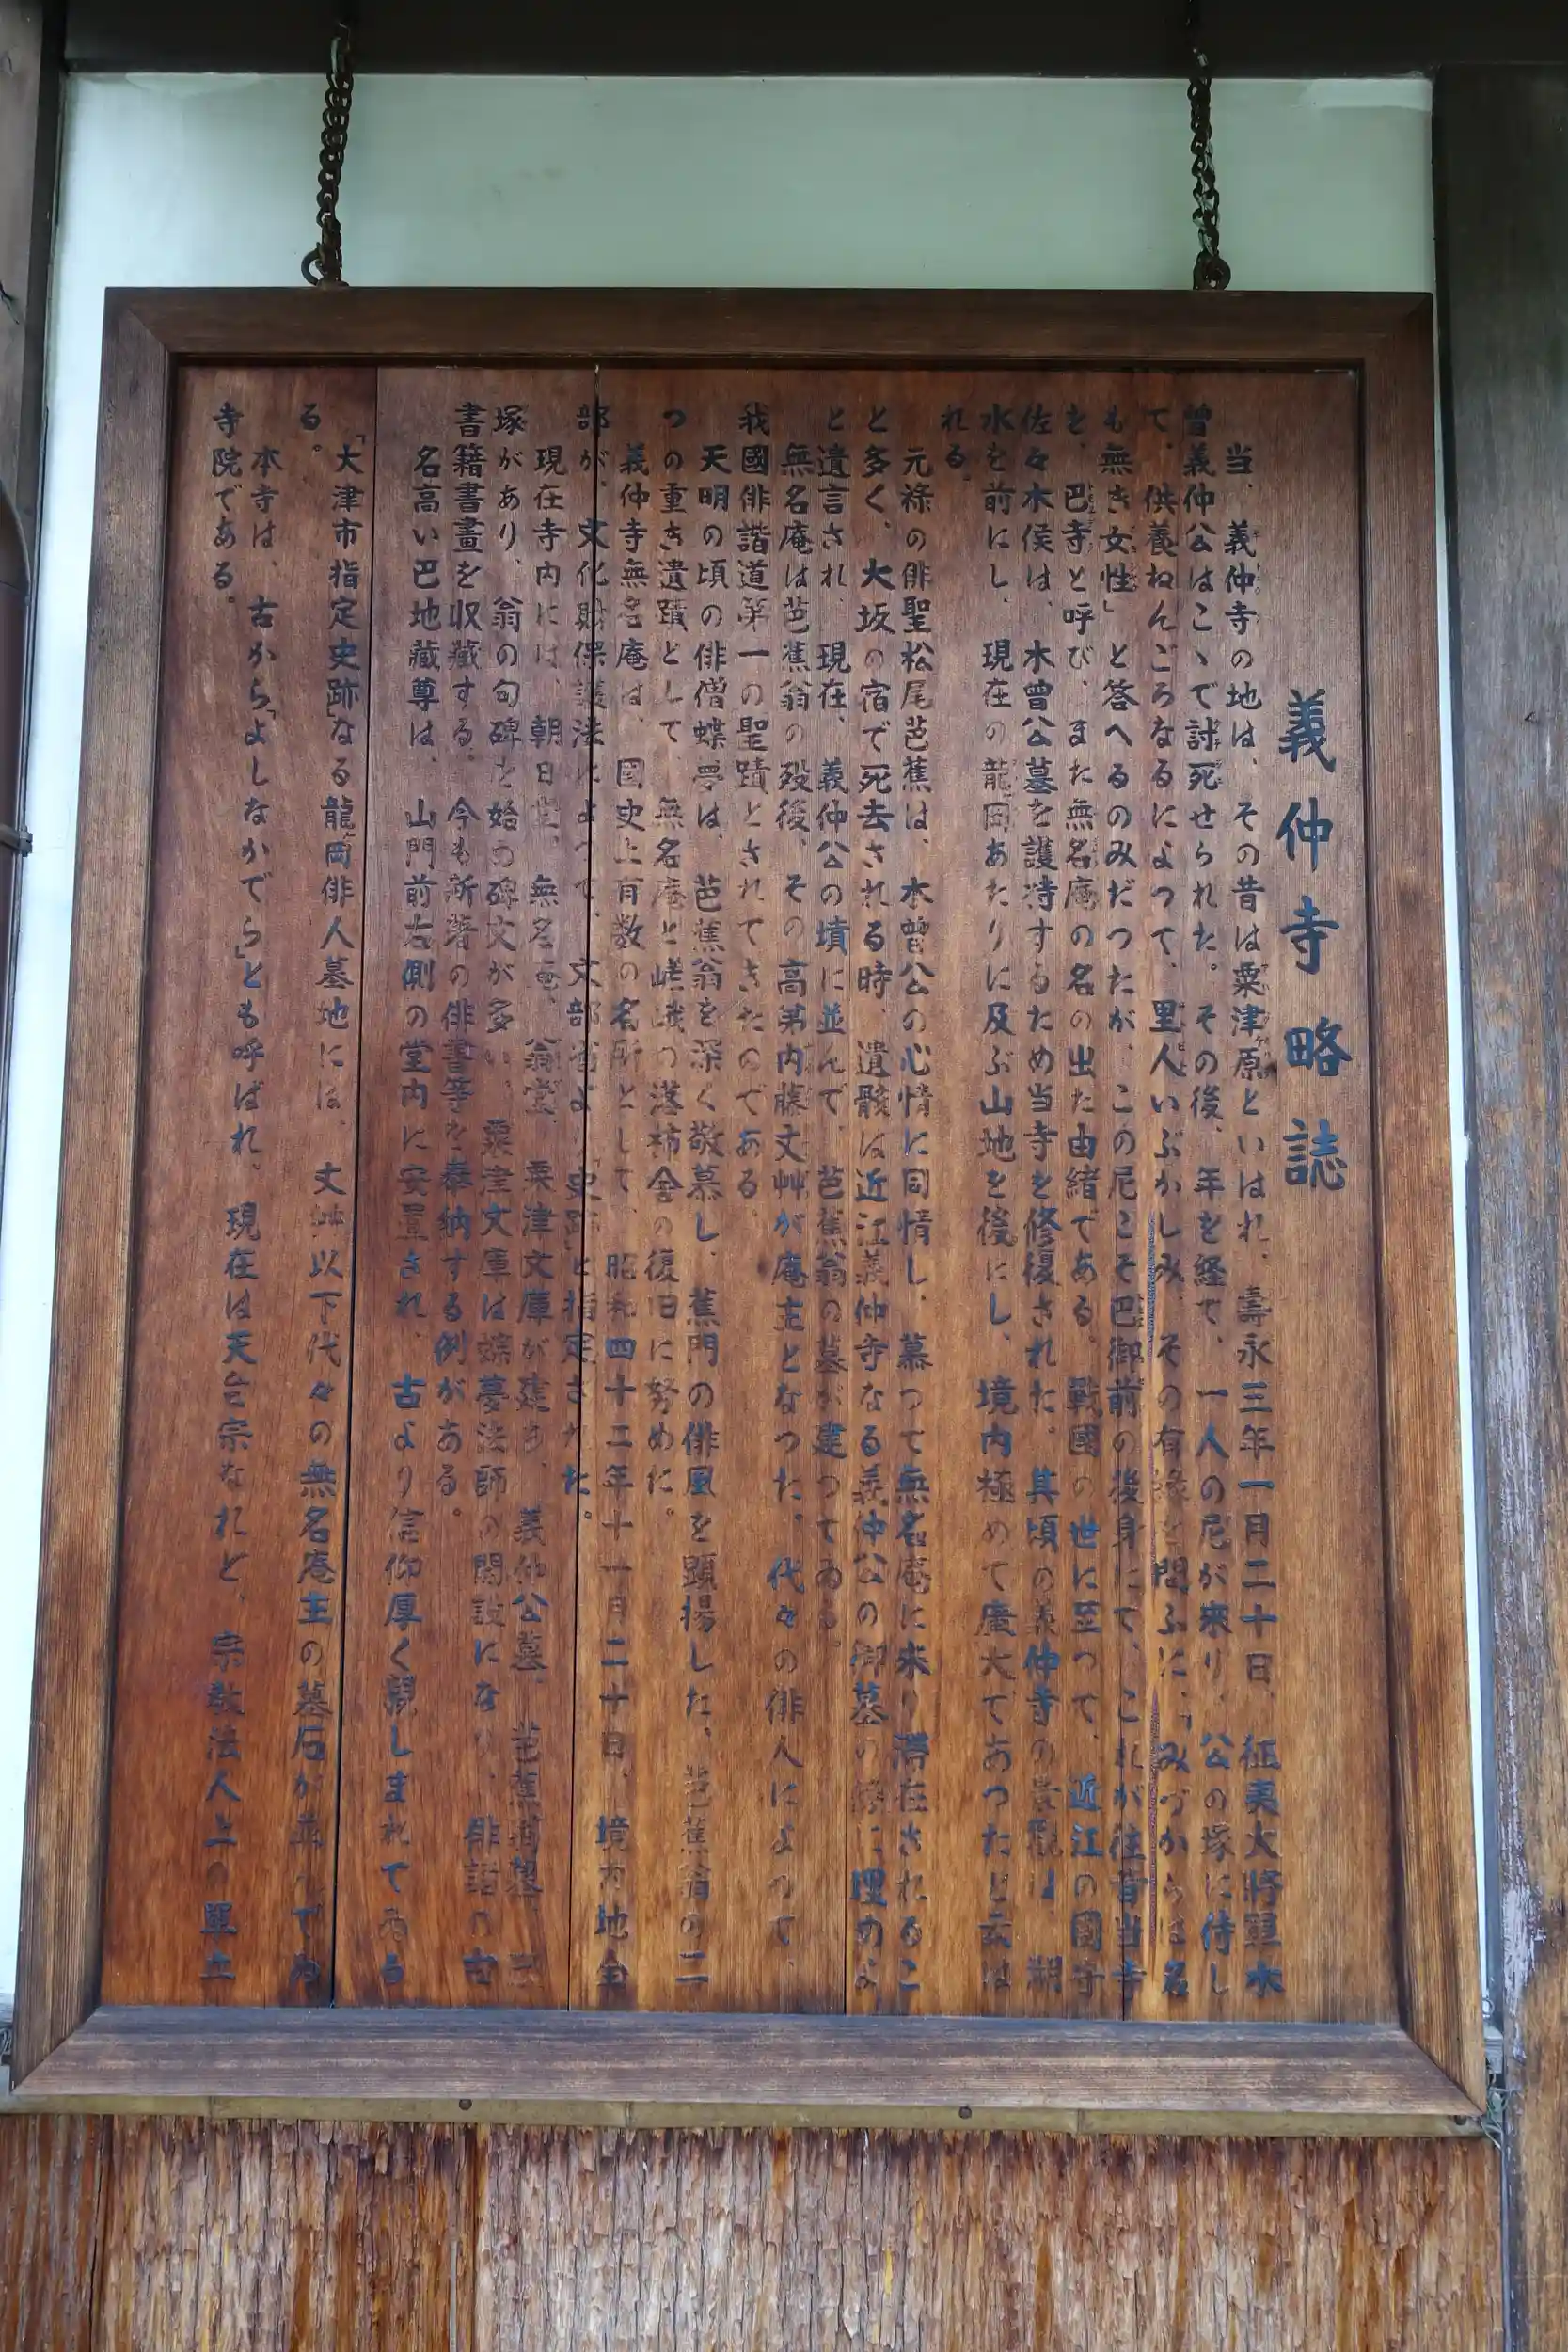 義仲寺略誌
当、義仲寺の地は、その昔は粟津原といはれ、壽永三年一月二十日、征夷大将軍木
曽義仲公はこゝで討死せられた。その後、年を経て、一人の尼が来り、公の塚に侍し
て、供養ねんごろなるによつて、里人いぶかしみ、その有縁を問ふに、「みづからは名
も無き女性」と答へるのみだつたが、この尼こそ巴御前の後身にて、これが往昔当寺
を、巴寺と呼び、また無名庵の名の出た由緒である。戰國の世に至つて、近江の國守
佐々木侯は、木曽公墓を護持するため当寺を修復された。其頃の義仲寺の景観は、湖
水を前にし、現在の龍岡あたりに及ぶ山地を後にし、境内極めて廣大であつたと云は
れる。
元禄の俳聖松尾芭蕉は、木曽公の心情に同情し、慕つて無名庵に来り滞在されるこ
と多く、大坂の宿で死去される時、遺骸は近江義仲寺なる義仲公の御墓の傍に埋めよ
と遺言され、現在、義仲公の墳に並んで、芭蕉翁の墓が建つてゐる。
無名庵は芭蕉翁の歿後、その高弟内藤丈艸が庵主となつた。代々の俳人によつて、
我國俳諧道第一の聖蹟とされてきたのである。
天明の頃の俳僧蝶夢は、芭蕉翁を深く敬慕し、蕉門の俳風を顕揚した、芭蕉翁の二
つの重き遺蹟として、無名庵と嵯峨の落柿舎の復旧に努めた。
義仲寺無名庵は、国史上有数の名所として、昭和四十二年十一月二十日、境内地全
部が、文化財保護法によつて、文部省より「史跡」と指定された。
現在寺内には、朝日堂、無名庵、翁堂、粟津文庫が建ち、義仲公墓、芭蕉翁墓、巴
塚があり、翁の句碑を始め碑文が多い、粟津文庫は蝶夢法師の開設になり、俳諧の古
書籍書畫を収藏する。今も新著の俳書等を奉納する例がある。
名高い巴地藏尊は、山門前右側の堂内に安置され、古より信仰厚く親しまれてゐる
「大津市指定史跡」なる龍岡俳人墓地には、丈艸以下代々の無名庵主の墓石が並んでゐ
る。
本寺は、古から「よしなかでら」とも呼ばれ、現在は天台宗なれど、宗教法人上の單立
寺院である。